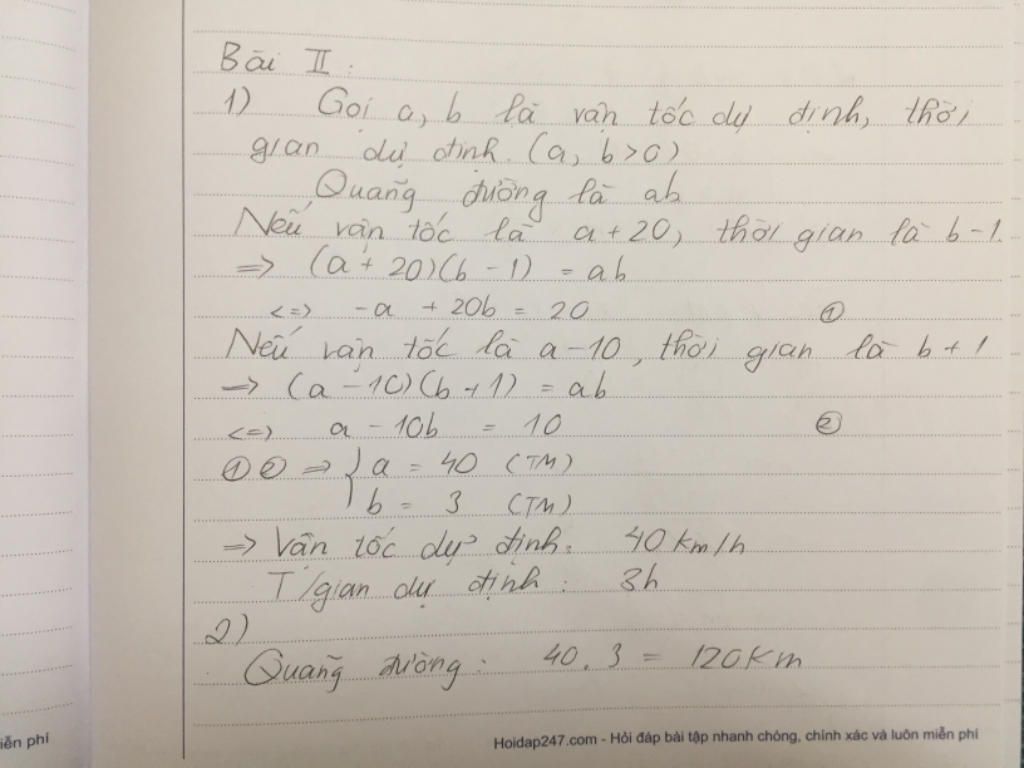 Bài II.
1) Gọi a, b là vận tốc dự định, thời
gian dự định. (a, b > 0)
Quãng đường là ab
Nếu vận tốc là a + 20, thời gian là b - 1.
=> (a + 20)(b - 1) = ab
<=> -a + 20b = 20 ①
Nếu vận tốc là a - 10, thời gian là b + 1
=> (a - 10)(b + 1) = ab
<=> a - 10b = 10 ②
① ② => { a = 40 (TM)
b = 3 (TM)
=> Vận tốc dự định: 40 km/h
T/gian dự định: 3h
2)
Quãng đường: 40.3 = 120km
iễn phí
Hoidap247.com - Hỏi đáp bài tập nhanh chóng, chính xác và luôn miễn phí